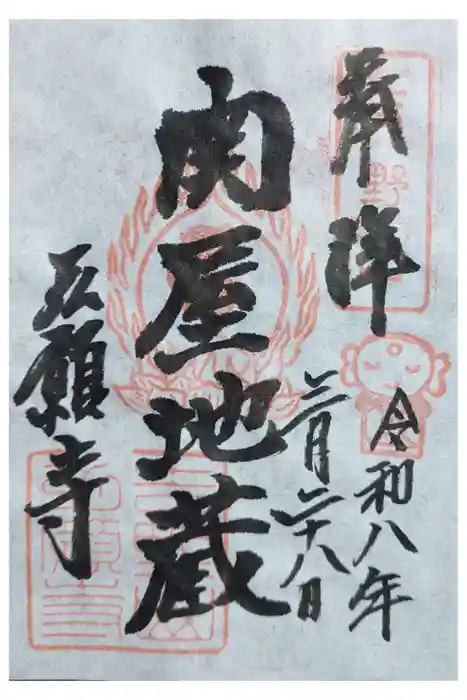 奉拝
令和八年
三月二十八日
関屋地蔵
弘願寺